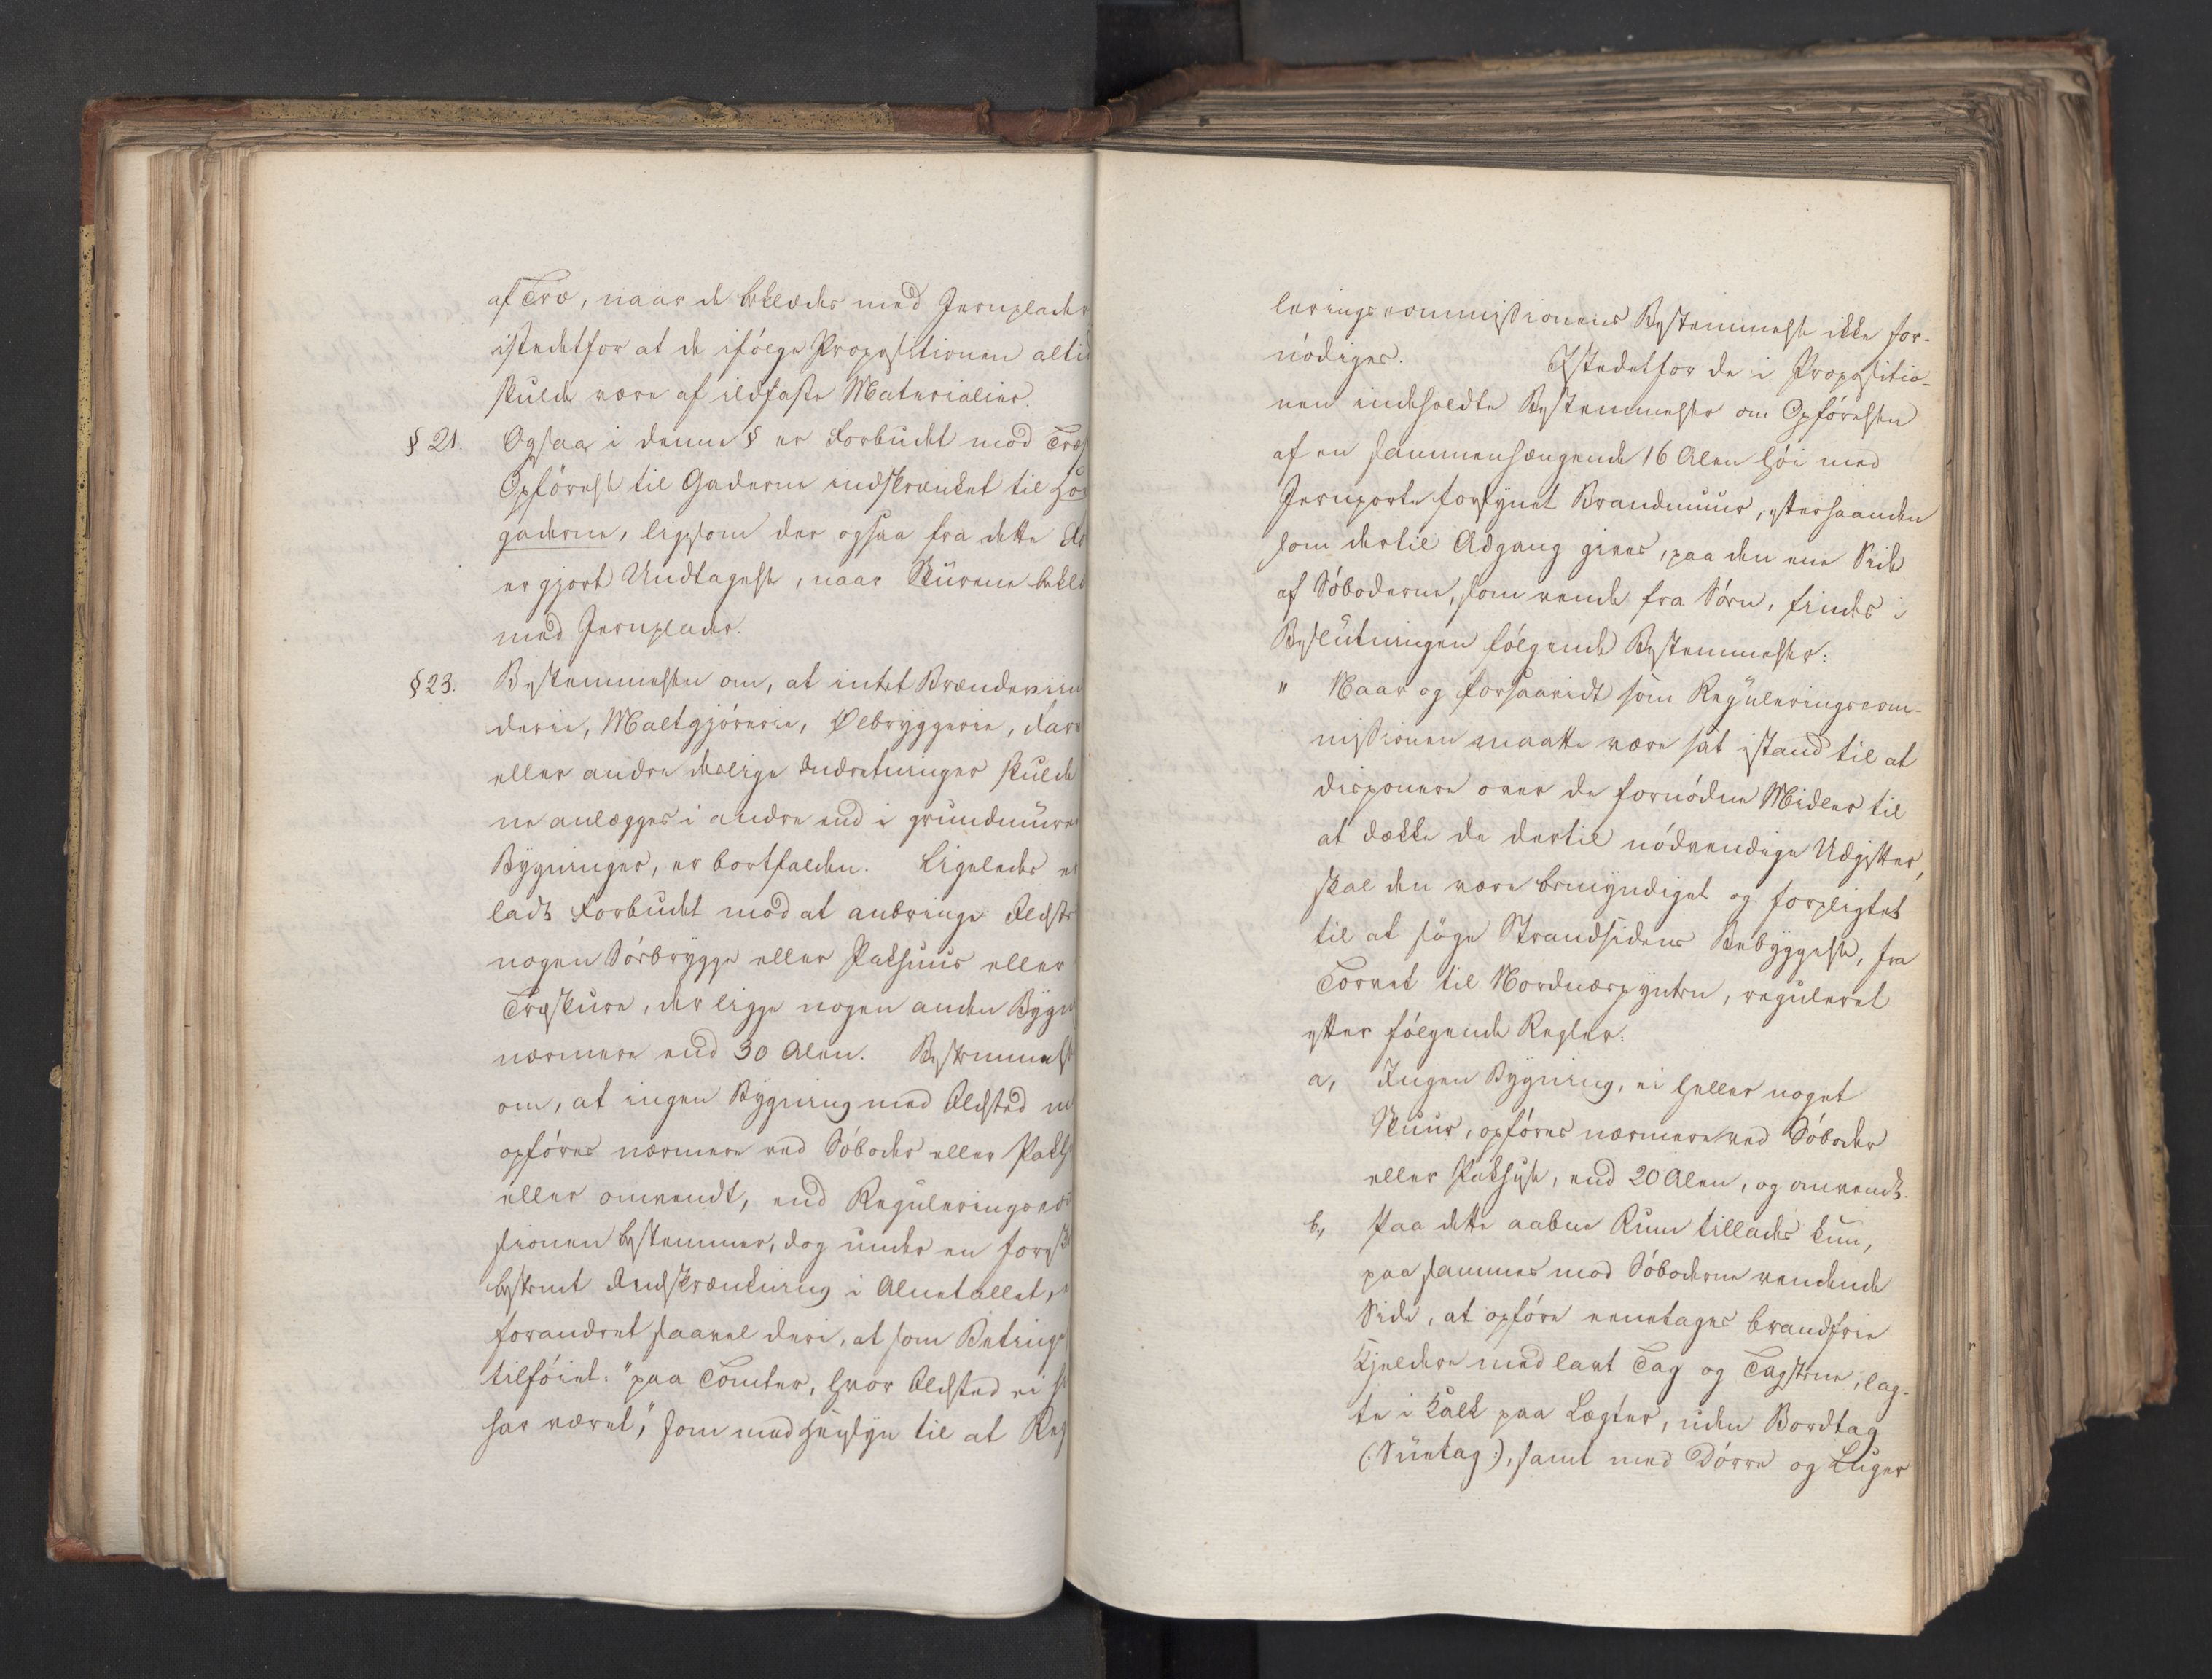 af Træ, naar de beklædes med Jernplader
istedetfor at de ifölge Propositionen altid
skulde være af ildfaste Materialier.
§ 21. Ogsaa i denne § er Forbudet mod Træ
Opförelse til Gaderne indskrænket til Ho
gaderne, ligesom der ogsaa fra dette
er gjort Undtagelse, naar Skurene beklæ
med Jernplader.
§ 23. Bestemmelsen om, at intet Brændeviin
derie, Maltgjörerie, Ölbryggerie, Farv
eller andre deslige Indretninger skulde
ne anlægges i andre end i grundmuure
Bygninger, er bortfalden. Ligeledes
ladt Forbudet mod at anbringe Ildst
nogen Söebrygge eller Pakhuus eller
Træskure, der ligge nogen anden Bygn
nærmere end 30 Alen. Bestemmelse
om, at ingen Bygning med Ildsted m
opföres nærmere ved Söboder eller Pakh
eller omvendt, end Reguleringsco
sionen bestemmer, dog under en
bestemt Indskrænkning i Alnetallet,
forandret saavel deri, at som Beting
tilföiet: "paa Tomter, hvor Ildsted ei
har været", som med Hensyn til at Re
leringscommissionens Bestemmelse ikke for-
nödiges. Istedetfor de i Propositio-
nen indeholdte Bestemmelser om Opförelsen
af en sammenhængende 16 Alen höi med
Jernporte forsynet Brandmuur, efterhaanden
som dertil Adgang gives, paa den ene Side
af Söboderne, som vende fra Söen, findes i
Beslutningen fölgende Bestemmelser:
" Naar og forsaavidt som Reguleringscom-
missionen maatte være sat istand til at
disponere over de fornödne Midler til
at dække de dertil nödvendige Udgifter,
skal den være bemyndiget og forpligtet
til at söge Strandsidens Bebyggelse, fra
Torvet til Nordnæspynten, reguleret
efter fölgende Regler:
a, Ingen Bygning, ei heller noget
Skuur, opföres nærmere ved Söboder
eller Pakhuse, end 20 Alen, og omvendt.
b, Paa dette aabne Rum tillades kun,
paa sammes mod Söboderne vendende
Side, at opföre eenetages brandfrie
Kjeldere med lavt Tag og Tagstene, lag-
te i Kalk paa Lægter, uden Bordtag
(:Suetag:), samt med Dörre og Luger